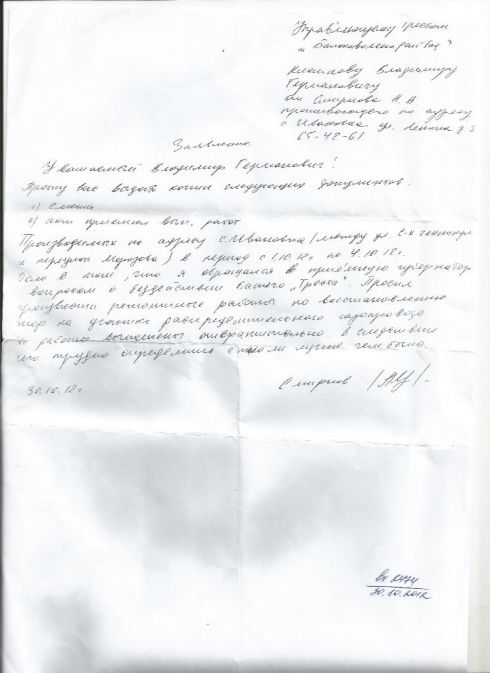 Управляющему трестом
"Балаковомежрайгаз"
Клошкову Владимиру
Германовичу
от Смирнова А.А
проживающего по адресу
с Ивановка ул. Ленина д 2
65-48-61
Заявление
Уважаемый Владимир Германович!
Прошу вас выдать копии следующих документов.
1) Смета
2) акт приёмки вып. работ
Производимых по адресу с. Ивановка (между ул.
и переулком Морозова) в период с 1.10.12г по 4.10.12г.
Дело в том, что я обращался в приёмную губернатора
вопросом о бездействии вашего "Треста". Просил
произвести ремонтные работы по восстановлению
опор на участке распределительного газопровода
работы выполнены отвратительно. в следствии
чего трудно определить стало ли лучше чем было.
30.10.12г Смирнов
вх 2174
30.10.2012